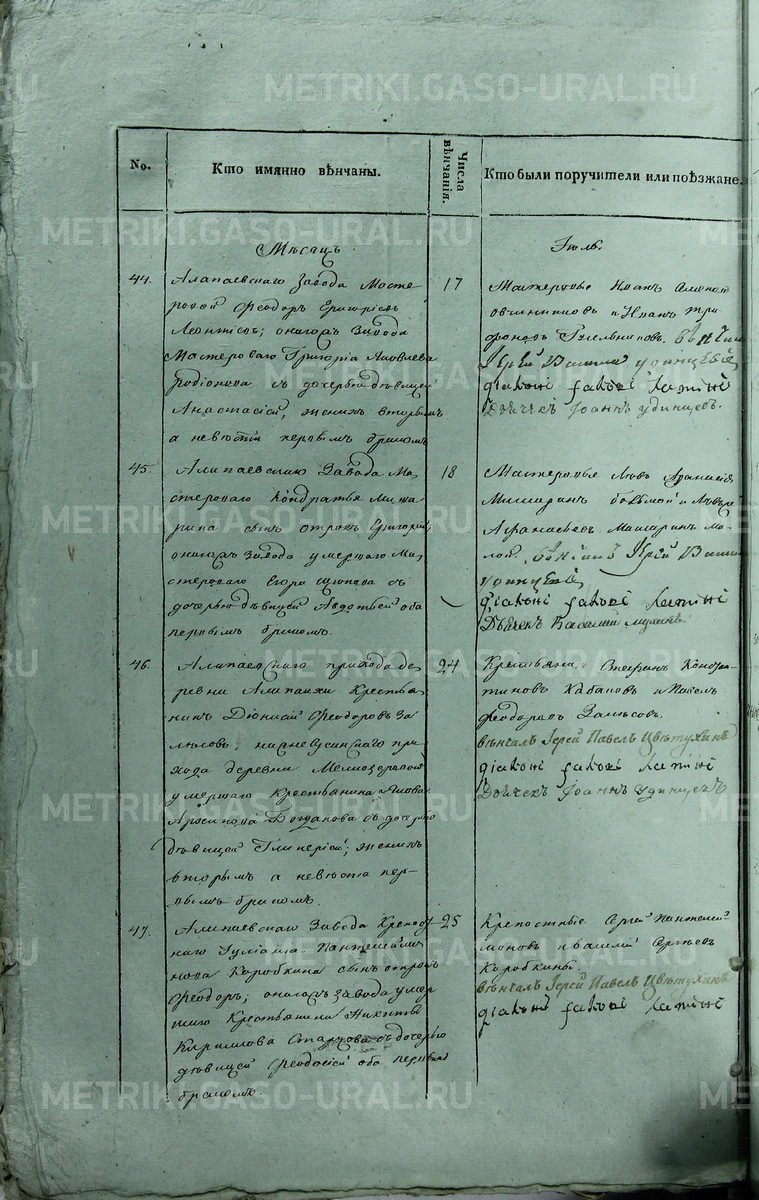 METRIKI.GASO-URAL.RU
No.
Кто имянно вѣнчаны.
Числа вѣнчанія.
Кто были поручители или поѣзжане.
Мѣсяцъ
Іюль.
44.
Алапаевскаго Завода Масте
ровой Ѳеодоръ Григорьевъ
Леонтіевъ; онагожъ Завода
Мастероваго Григорія Яковлева
Родіонова съ дочерью дѣвицей
Анастасіей, женихъ вторымъ
а невѣста первымъ бракомъ
17
Мастеровые Иванъ
Овчинниковъ и Иванъ Три
фоновъ
Іерей Удинцевъ
діаконъ Іаковъ
Дьячекъ Іоаннъ Удинцевъ.
45.
Алапаевскаго Завода Ма
стероваго Кондратья Миша
рина сынъ отрокъ Григорій,
онагожъ Завода умершаго Ма
стероваго Егора съ
дочерью дѣвицей Авдотьей оба
первымъ бракомъ.
18
Мастеровые Левъ Аѳанасіевъ
Мишаринъ большой и Левъ
Аѳанасьевъ Мишаринъ ма
лой. Іерей
Удинцевъ
діаконъ Іаковъ
Дьячекъ Василій
46.
Алапаевскаго прихода де
ревни Алапаихи Крестья
нинъ Діонисій Ѳеодоровъ За
прихода деревни
умершаго Крестьянина Якова
Богданова съ дочерью
дѣвицей Гликеріей; женихъ
вторымъ а невѣста пер
вымъ бракомъ.
24
Крестьяна, Стефанъ Констан
тиновъ Кабаковъ и Павелъ
Ѳеодоровъ
вѣнчалъ Іерей Павелъ Цвѣтухинъ
діаконъ Іаковъ
Дьячекъ Іоаннъ Удинцевъ
47.
Алапаевскаго Завода Крепост
наго Пантелеймо
нова Коробкина сынъ отрокъ
Ѳеодоръ; онагожъ завода умер
шаго Крестьянина Никиты
Кирилова Старцова съ дочерью
дѣвицей Ѳеодосіей оба первымъ
бракомъ.
25
Крепостные Сергей Пантелей
моновъ и Василій Сергѣевъ
Коробкины
вѣнчалъ Іерей Павелъ Цвѣтухинъ
діаконъ Іаковъ